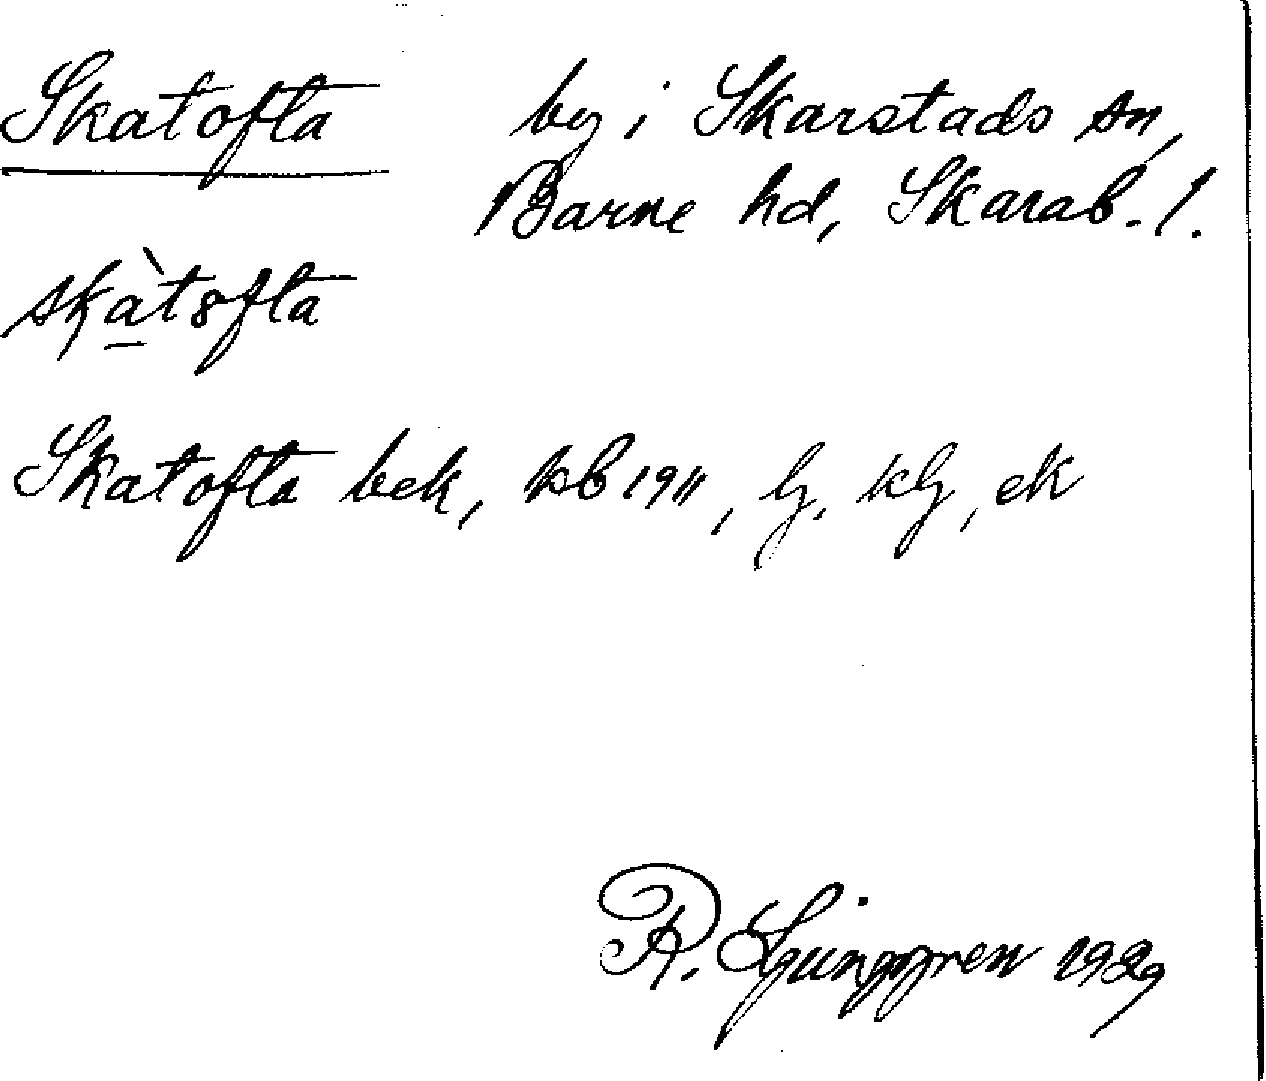 Skatofta by i Skarstads sn,
Barne hd, Skarab. l.
skàt8fta
Skatofta bek, kb 1911, lj, klj, ek
R. Ljunggren 1929